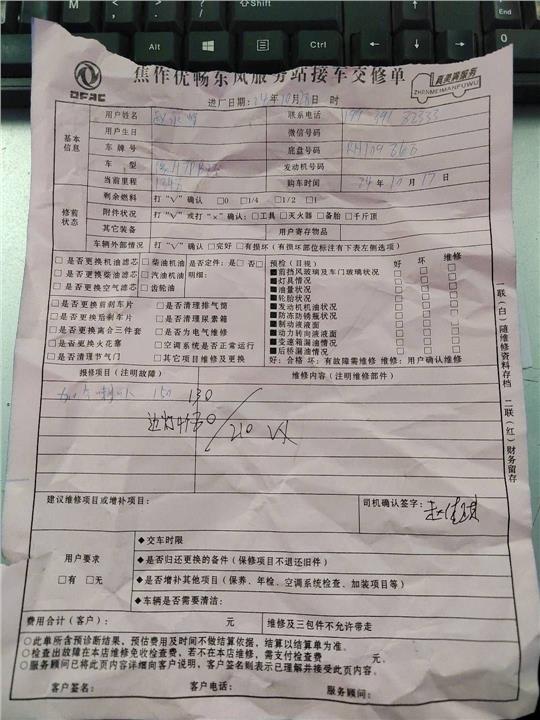 Shift
Alt
Ctrl
焦作优畅东风服务站接车交修单
DFAC
真美满服务
ZHENMEIMANFUWU
进厂日期：24年10月 日 时
基本信息
用户姓名
联系电话 199 391 82333
用户生日
微信号码
车牌号
底盘号码 RH109866
车型
发动机号码
当前里程
购车时间 24年10月17日
修前状态
剩余燃料 打“√”确认 □0 □1/4 □1/2 □1
附件状况 打“√”或打“×”确认：□工具 □灭火器 □备胎 □千斤顶
其它装备
用户寄存物品
车辆外部情况 打“√”确认 □完好 □有损坏（有损坏部位标注有下表左侧选项）
□是否更换机油滤芯 □柴油机油 是否定件：是□ 否□
□是否更换柴油滤芯 □汽油机油 明细：
□是否更换空气滤芯 □齿轮油
□是否更换前刹车片 □是否清理排气筒
□是否更换后刹车片 □是否清理尿素箱
□是否更换离合三件套 □是否为电气维修
□是否更换火花塞 □空调系统是否正常运行
□是否清理节气门 □其它项目维修及更换
预检（目视） 好 坏 维修
■前挡风玻璃及车门玻璃状况 □ □ □
■灯具情况 □ □ □
■油量状况 □ □ □
■轮胎状况 □ □ □
■发动机机油状况 □ □ □
■防冻防锈瓶状况 □ □ □
■制动液液面 □ □ □
■动力转向液液面 □ □ □
■变速箱漏油情况 □ □ □
■后桥漏油情况 □ □ □
好：合格 坏：有故障需维修 维修：用户确认维修
报修项目（注明故障）
维修内容（注明维修部件）
150 130
210
建议维修项目或增补项目：
司机确认签字：
用户要求
□有 □无
◆交车时限
◆是否归还更换的备件（保修项目不退还旧件）
◆是否增补其他项目（保养、年检、空调系统检查、加装项目等）
◆车辆是否需要清洁：
费用合计（客户）： 元
维修及三包件不允许带走
○此单所含预诊断结果，预估费用及时间不做结算依据，结算以结算单为准。
○检查出故障在本店维修免收检查费，若不在本店维修，需支付检查费 元。
○服务顾问已将此页内容详细向客户说明，客户签名则表示已理解并接受此页内容。
客户签名： 客户电话： 服务顾问：
一联（白）随维修资料存档 二联（红）财务留存